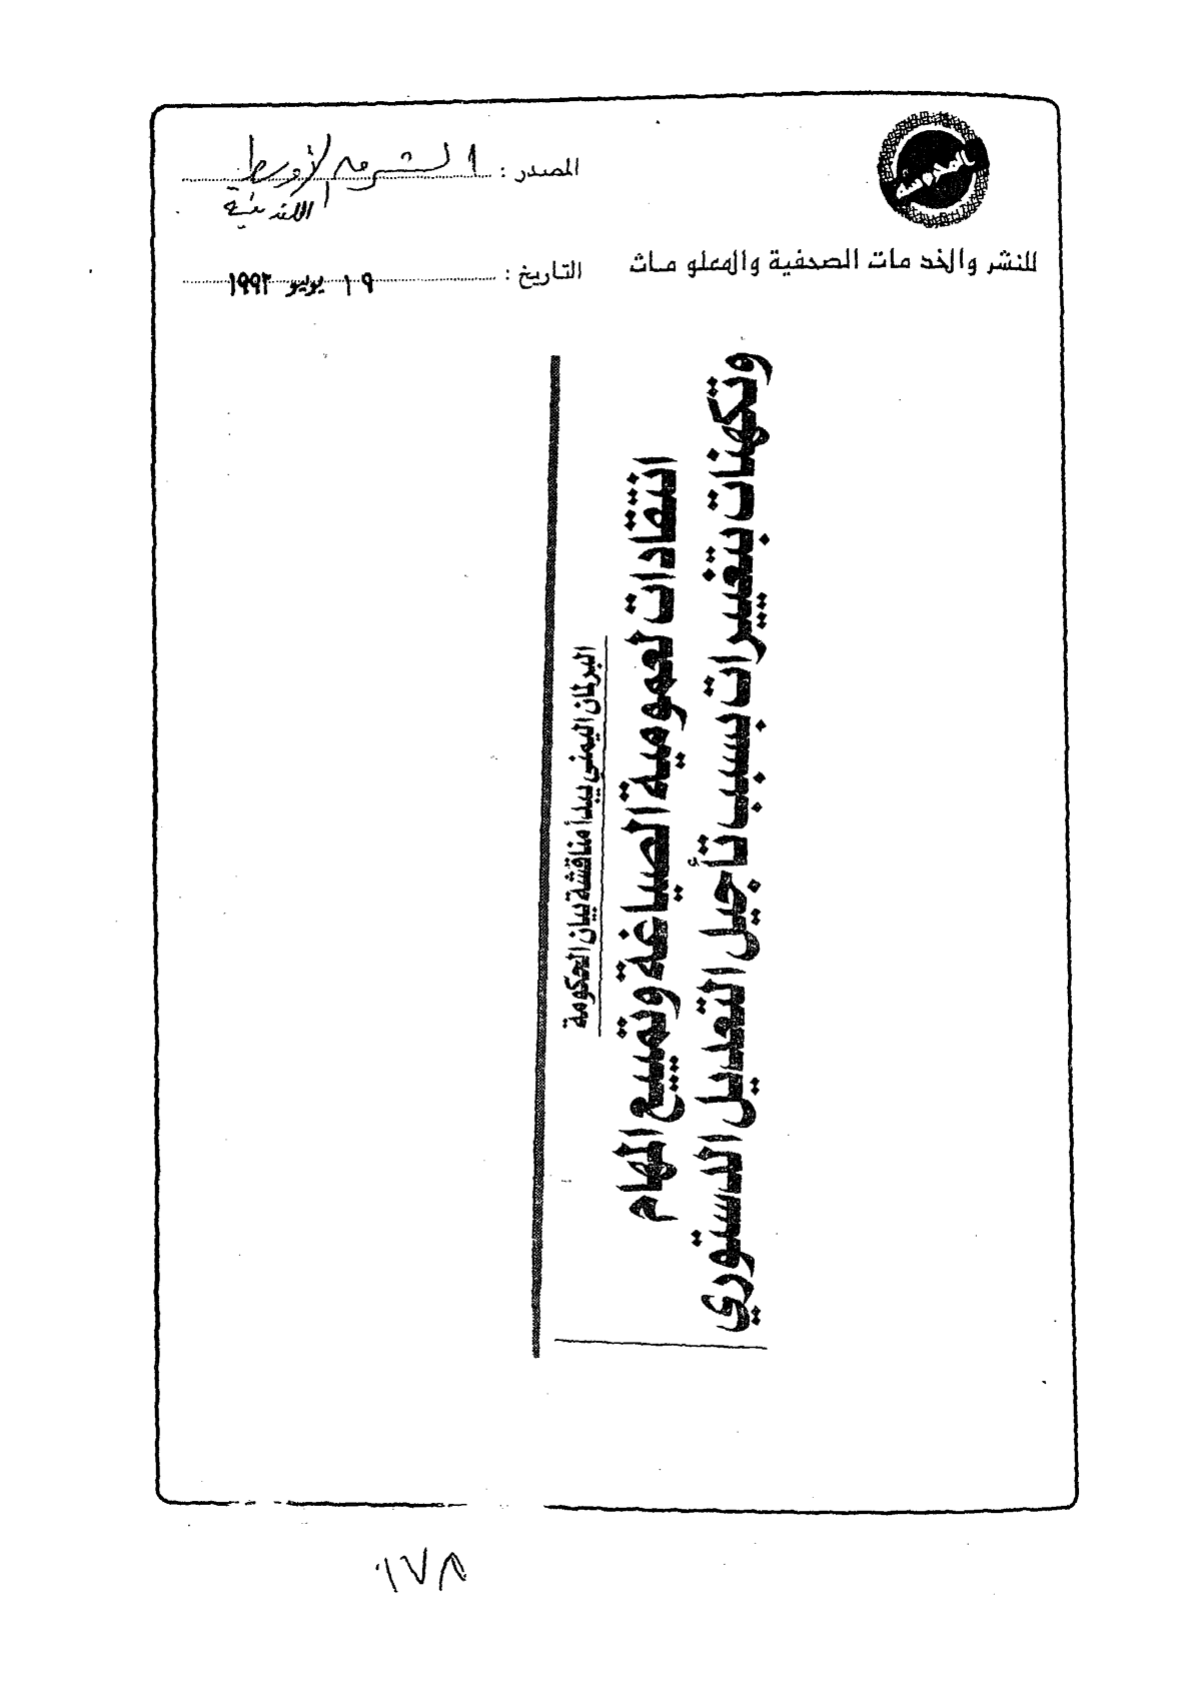 المحروسة
للنشر والخدمات الصحفية والمعلومات
المصدر : الشرق الأوسط
اللندنية
التاريخ : ١٩ يوليو ١٩٩٣
البرلمان اليمني يبدأ مناقشة بيان الحكومة
انتقادات لعمومية الصياغة وتمييع المهام
وتكهنات بتغييرات بسبب تأجيل التعديل الدستوري
٦٧٨